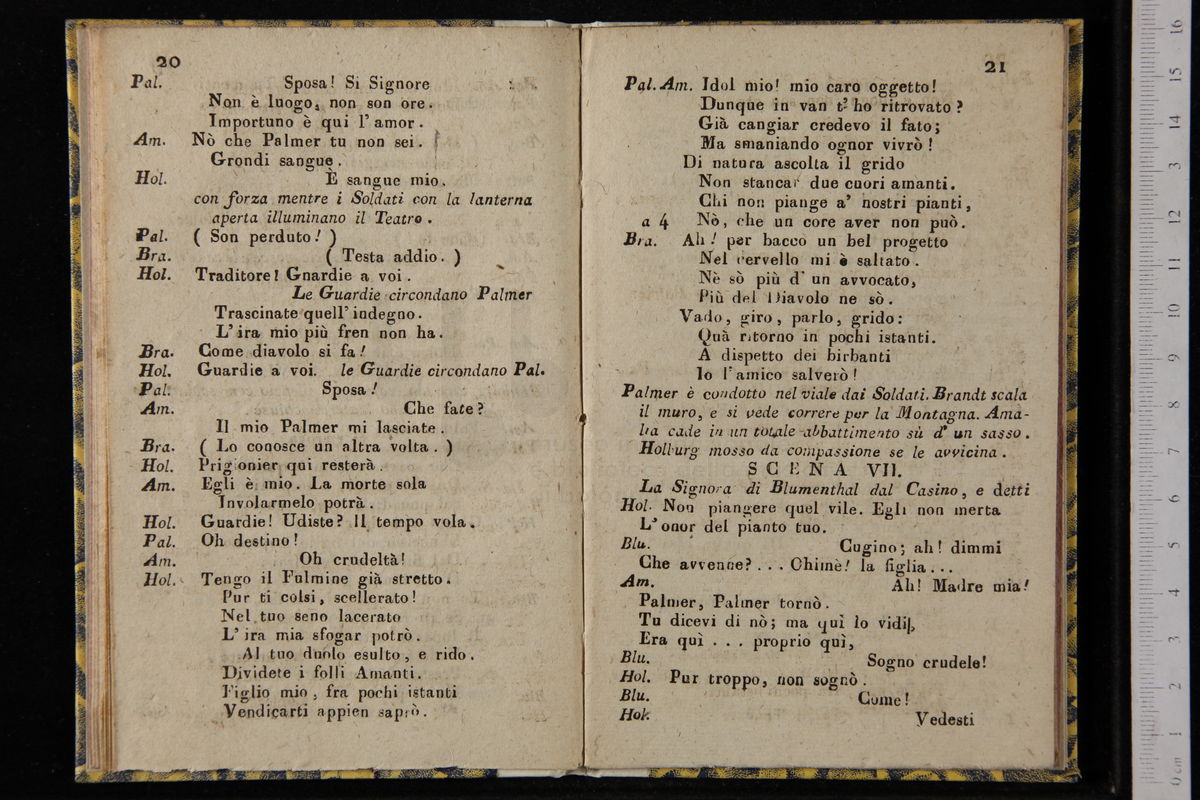 20
Pal. Sposa! Si Signore
Non è luogo, non son ore.
Importuno è qui l'amor.
Am. Nò che Palmer tu non sei.
Grondi sangue.
Hol. È sangue mio.
con forza mentre i Soldati con la lanterna
aperta illuminano il Teatro.
Pal. ( Son perduto! )
Bra. ( Testa addio. )
Hol. Traditore! Gnardie a voi.
Le Guardie circondano Palmer
Trascinate quell'indegno.
L'ira mio più fren non ha.
Bra. Come diavolo si fa!
Hol. Guardie a voi. le Guardie circondano Pal.
Pal. Sposa!
Am. Che fate?
Il mio Palmer mi lasciate.
Bra. ( Lo conosce un altra volta. )
Hol. Prigionier qui resterà.
Am. Egli è mio. La morte sola
Involarmelo potrà.
Hol. Guardie! Udiste? Il tempo vola.
Pal. Oh destino!
Am. Oh crudeltà!
Hol. Tengo il Fulmine già stretto.
Pur ti colsi, scellerato!
Nel tuo seno lacerato
L'ira mia sfogar potrò.
Al tuo duolo esulto, e rido.
Dividete i folli Amanti.
Figlio mio, fra pochi istanti
Vendicarti appien saprò.
21
Pal. Am. Idol mio! mio caro oggetto!
Dunque in van t'ho ritrovato?
Già cangiar credevo il fato;
Ma smaniando ognor vivrò!
Di natura ascolta il grido
Non stancar due cuori amanti.
Chi non piange a' nostri pianti,
a 4 Nò, che un core aver non può.
Bra. Ah! per bacco un bel progetto
Nel cervello mi è saltato.
Nè sò più d'un avvocato,
Più del Diavolo ne sò.
Vado, giro, parlo, grido:
Quà ritorno in pochi istanti.
A dispetto dei birbanti
Io l'amico salverò!
Palmer è condotto nel viale dai Soldati. Brandt scala
il muro, e si vede correre per la Montagna. Ama-
lia cade in un totale abbattimento sù d'un sasso.
Holburg mosso da compassione se le avvicina.
SCENA VII.
La Signora di Blumenthal dal Casino, e detti
Hol. Non piangere quel vile. Egli non merta
L'onor del pianto tuo.
Blu. Cugino; ah! dimmi
Che avvenne?... Ohimè! la figlia...
Am. Ah! Madre mia!
Palmer, Palmer tornò.
Tu dicevi di nò; ma quì lo vidi,
Era quì... proprio quì,
Blu. Sogno crudele!
Hol. Pur troppo, non sognò.
Blu. Come!
Hol. Vedesti